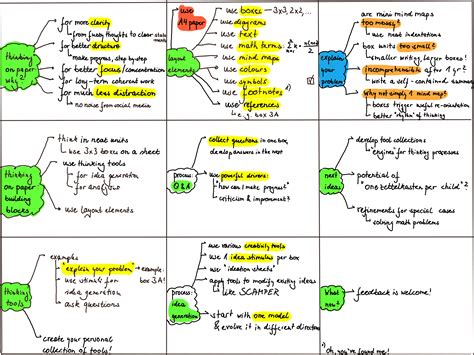 thinking
on paper
why?
for more clarity
from fuzzy thoughts to clear statements
for better structure
make progress, step by step
for better focus/concentration
for long-term coherent work
for much less distraction
no noise from social media
layout
elements
use
A4 paper
use boxes - 3x3, 2x2, ...
use diagrams
use text
use math terms
use mind maps
use colours
use symbols
use footnotes 1)
use references
e.g. box 3A
explain
your
problem
are mini mind maps
too messy?
use neat indentations
box writes too small?
smaller writing, larger boxes!
incomprehensible after 1 yr?
write a self-contained summary
why not simply 1 mind map?
boxes trigger useful re-orientation
better "rhythm" of thinking
thinking
on paper
building
blocks
think in neat units
use 3x3 boxes on a sheet
use thinking tools
for idea generation
for analysis
use layout elements
process:
Q&A
collect questions in one box,
develop answers in the next
use powerful drivers:
how can I make progress?
criticism & improvement?
next
ideas
develop tool collections
"engines" for thinking processes
potential of
"one zettelkasten per child" 2)
refinements for special cases
solving math problems
thinking
tools
examples
"explain your problem"
example:
box 3A!
use stimuli for
idea generation
ask questions
create your personal
collection of tools!
process:
idea
generation
use various creativity tools
use 1 idea stimulus per box
use "ideation sheets"
apply tools to modify existing ideas
like SCAMPER
start with one model
& evolve it in different directions
What
now?
feedback is welcome!
1) oh, you've found me!